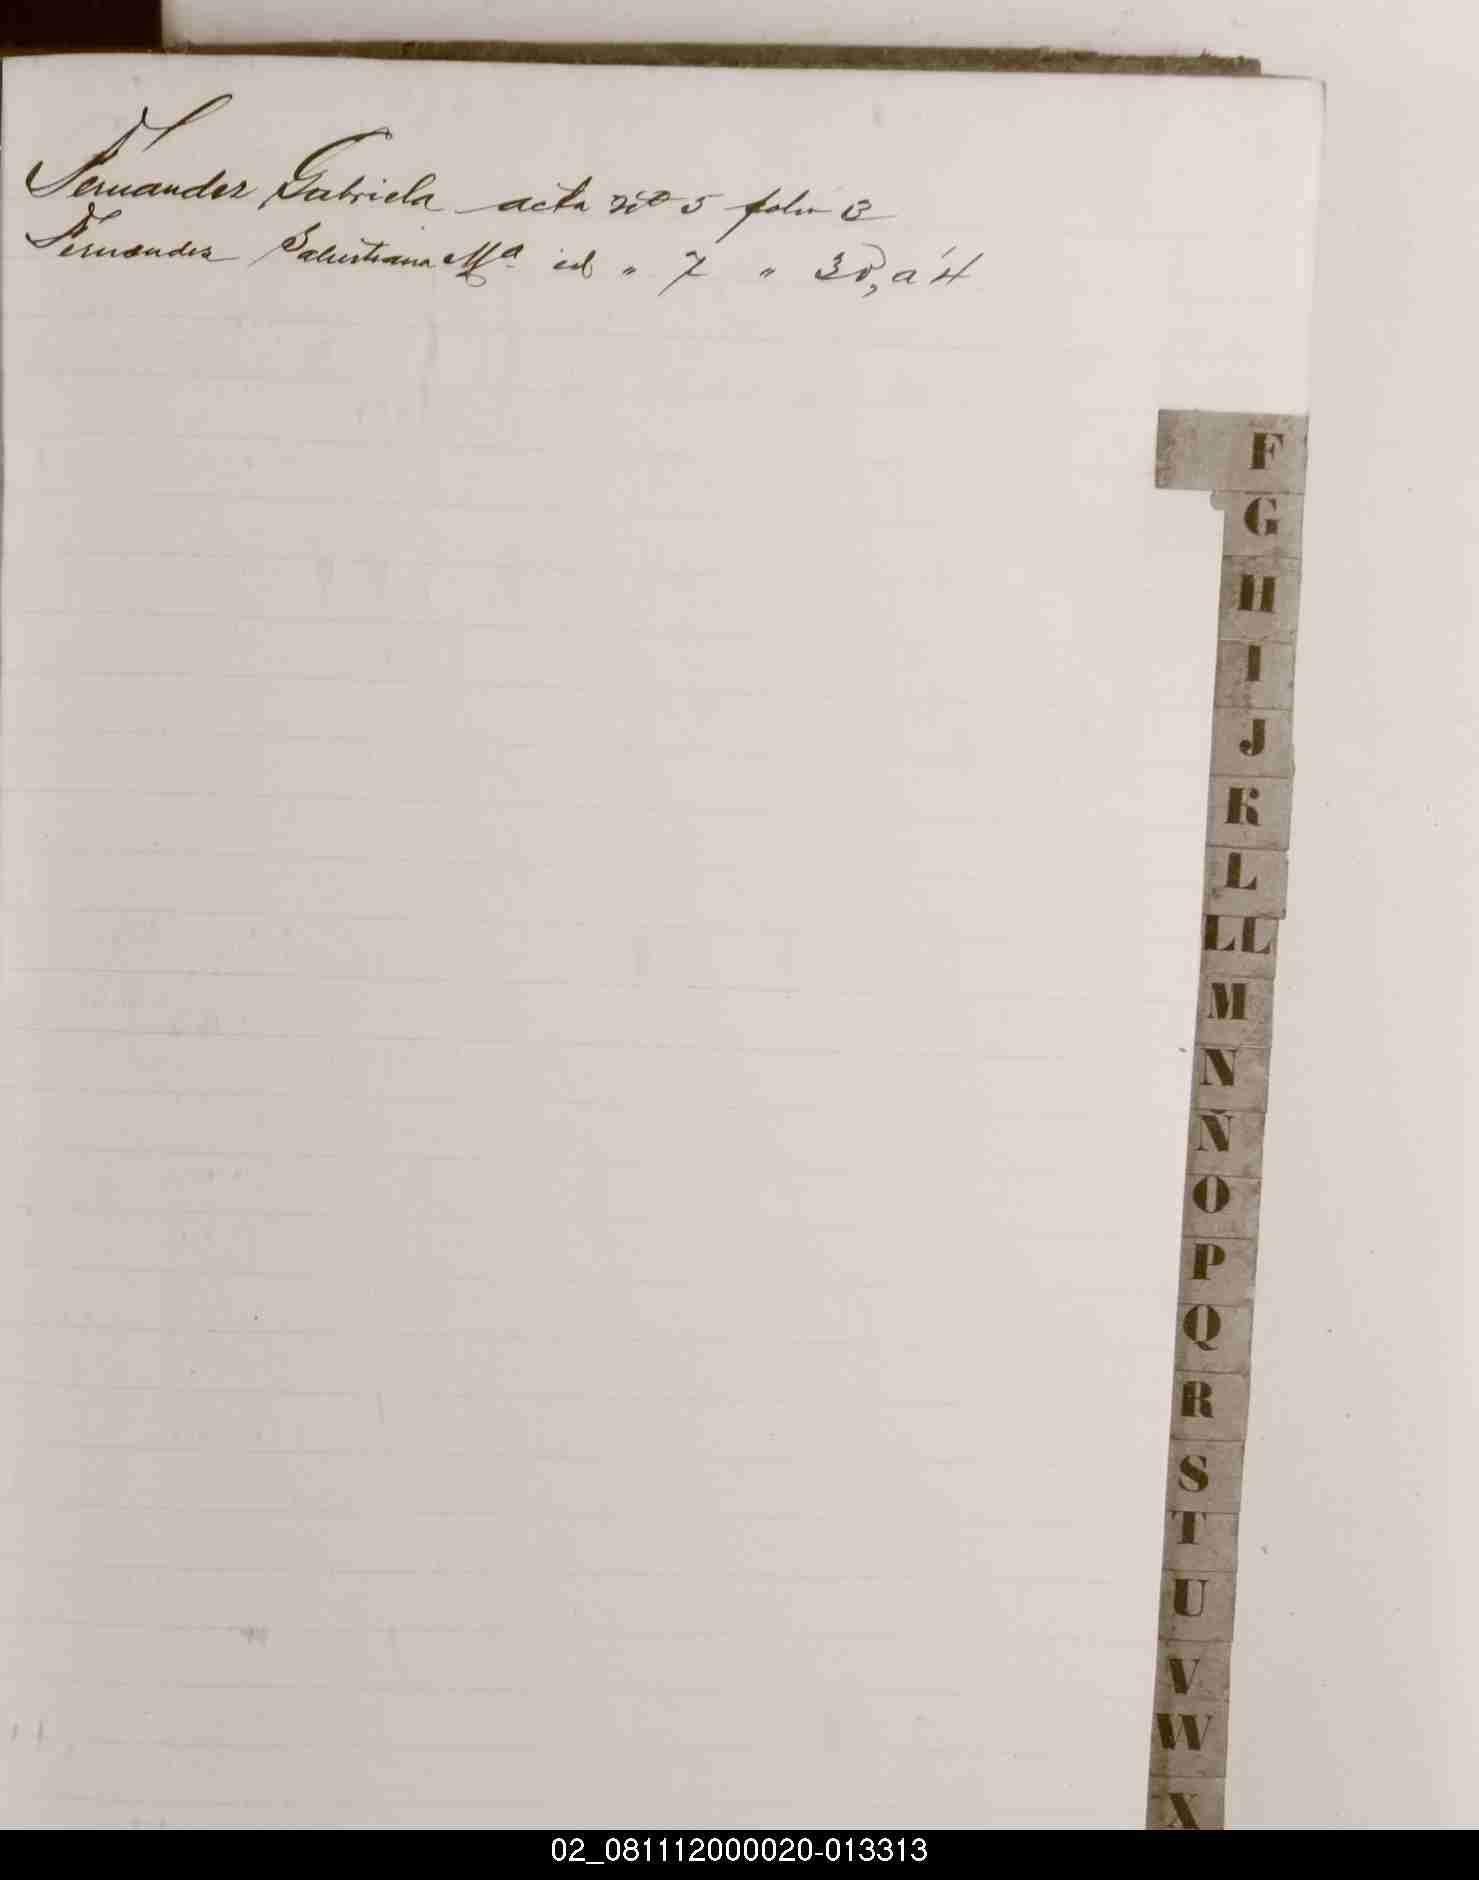 Fernandez Gabriela acta nº 5 folio 3
Fernandez Salustiana Mª id " 7 " 3v, a 4
F
G
H
I
J
K
L
LL
M
N
Ñ
O
P
Q
R
S
T
U
V
W
X
02_081112000020-013313